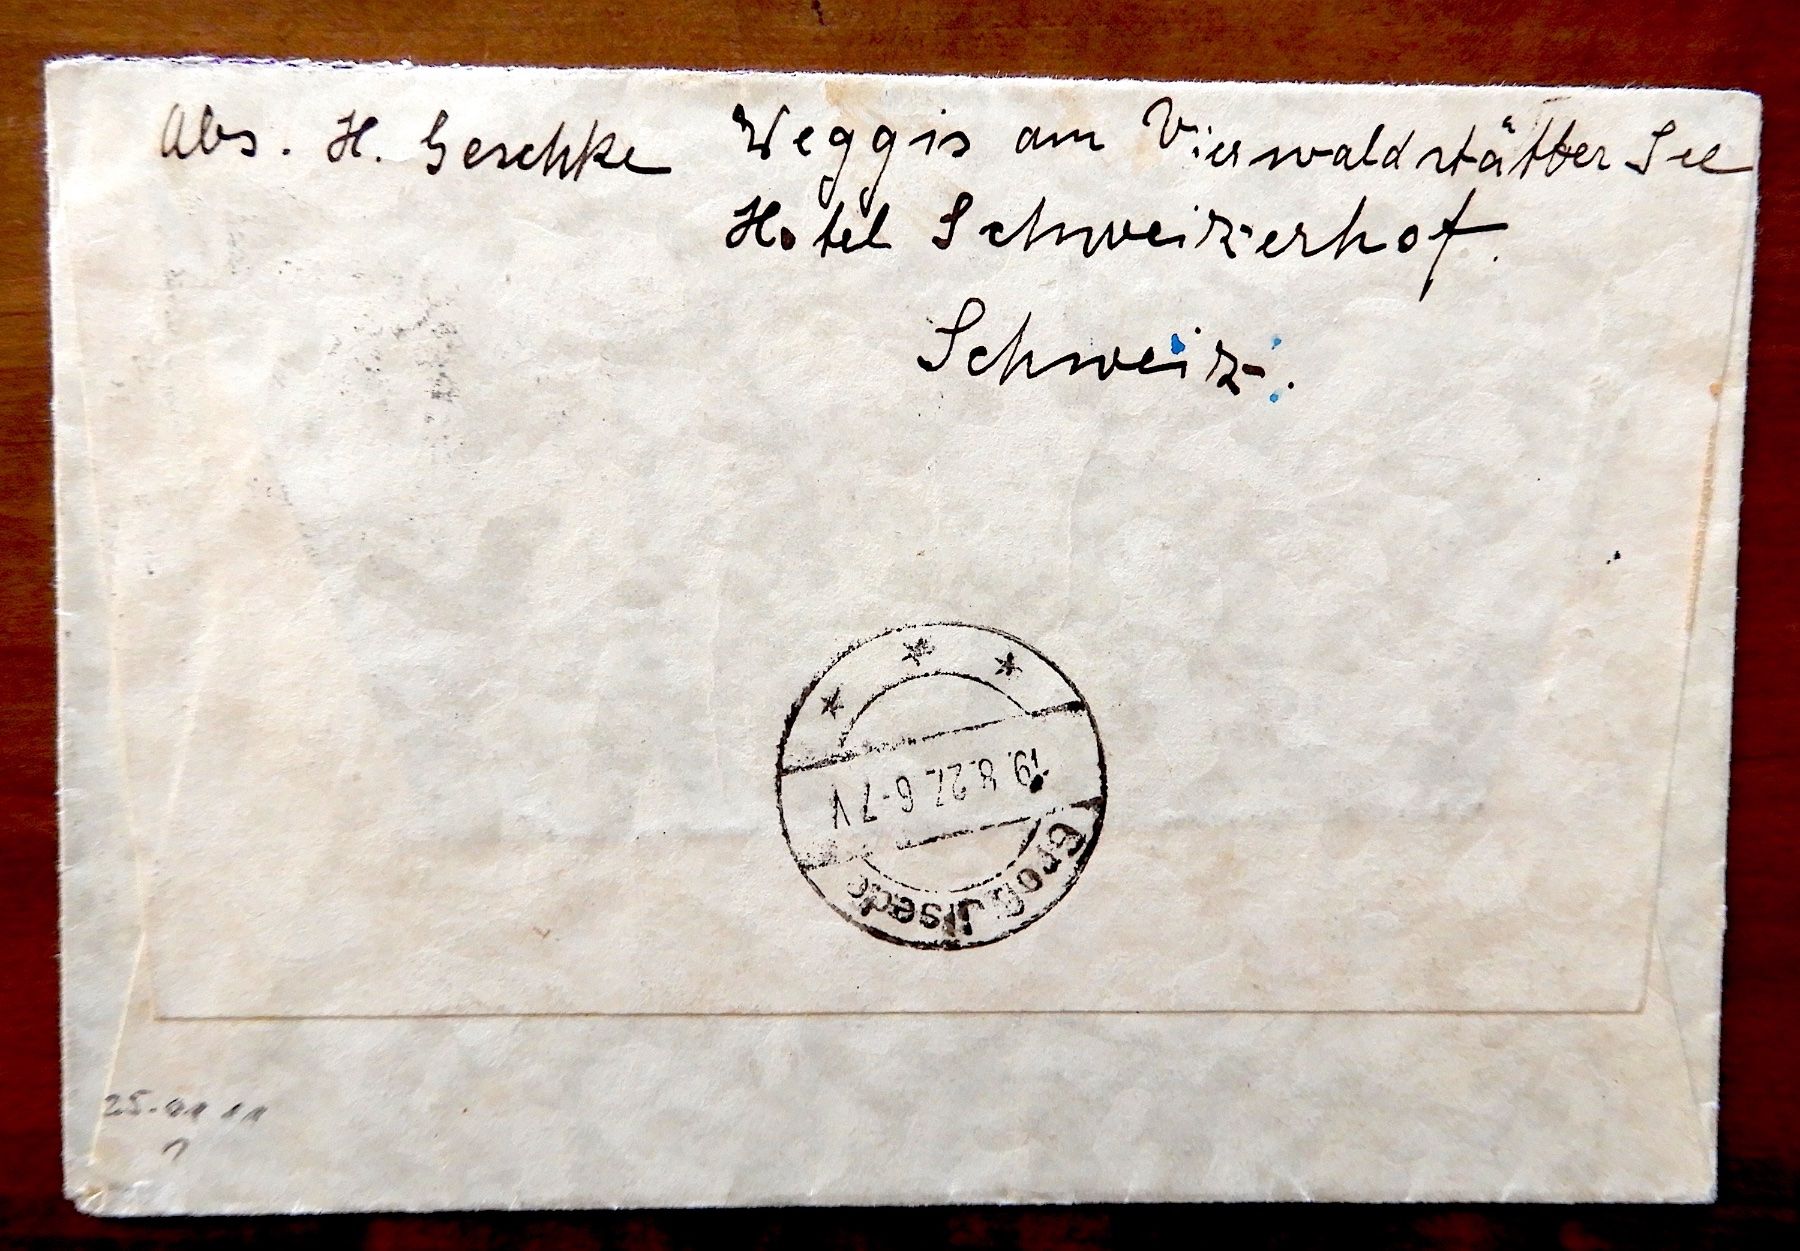 Abs. H. Geschke Weggis am Vierwaldstätter See
Hotel Schweizerhof.
Schweiz.
19.8.27. 6-7 V
Groß Jlsede